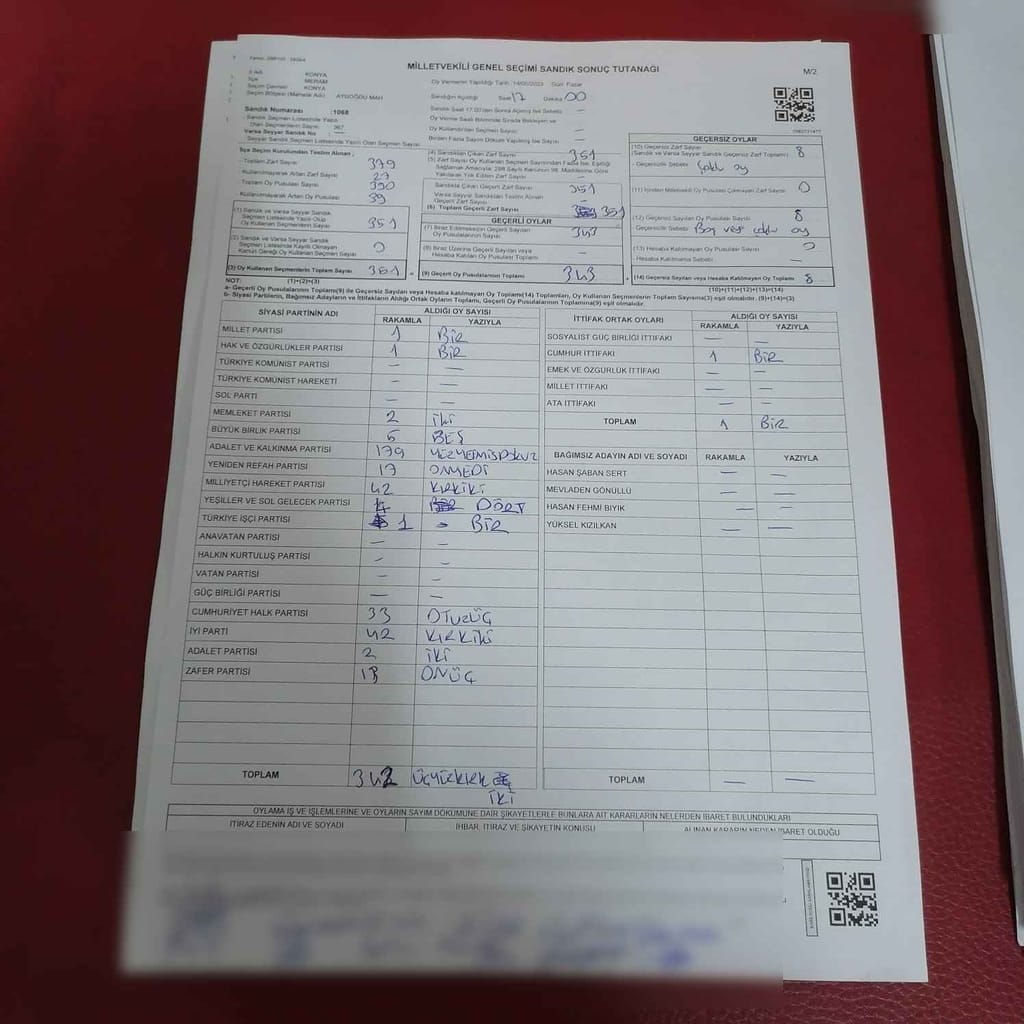 MİLLETVEKİLİ GENEL SEÇİMİ SANDIK SONUÇ TUTANAĞI
M/2
İl Adı KONYA
İlçe MERAM
Seçim Çevresi KONYA
Seçim Bölgesi (Mahalle Adı) AYDOĞDU MAH
Oy Vermenin Yapıldığı Tarih :14/05/2023 Gün: Pazar
Sandığın Açıldığı Saat 17 Dakika 00
Sandık Saat 17:00'den Sonra Açılmış İse Sebebi : —
Oy Verme Saati Bitiminde Sırada Bekleyen ve
Oy Kullandırılan Seçmen Sayısı : —
Birden Fazla Sayım Döküm Yapılmış İse Sayısı —
Sandık Numarası :1068
Sandık Seçmen Listesinde Yazılı
Olan Seçmenlerin Sayısı: 367
Varsa Seyyar Sandık No —
Seyyar Sandık Seçmen Listesindeki Yazılı Olan Seçmen Sayısı
İlçe Seçim Kurulundan Teslim Alınan ;
- Toplam Zarf Sayısı 379
- Kullanılmayarak Artan Zarf Sayısı 27
Toplam Oy Pusulası Sayısı 390
- Kullanılmayarak Artan Oy Pusulası 39
(1) Sandık ve Varsa Seyyar Sandık
Seçmen Listesinde Yazılı Olup
Oy Kullanan Seçmen Sayısı 351
(2) Sandık ve Varsa Seyyar Sandık
Seçmen Listesinde Kayıtlı Olmayan
Kanun Gereği Oy Kullanan Seçmen Sayısı 0
(3) Oy Kullanan Seçmenlerin Toplam Sayısı 351
(1)+(2)=(3)
(4) Sandıktan Çıkan Zarf Sayısı 351
(5) Zarf Sayısı Oy Kullanan Seçmen Sayısından Fazla İse, Eşitliği
Sağlamak Amacıyla, 298 Sayılı Kanunun 98. Maddesine Göre
Yakılarak Yok Edilen Zarf Sayısı —
Sandıkta Çıkan Geçerli Zarf Sayısı 351
Varsa Seyyar Sandıktan Teslim Alınan
Geçerli Zarf Sayısı —
(6) Toplam Geçerli Zarf Sayısı 351
GEÇERLİ OYLAR
(7) İtiraz Edilmeksizin Geçerli Sayılan
Oy Pusulalarının Sayısı 343
(8) İtiraz Üzerine Geçerli Sayılan veya
Hesaba Katılan Oy Pusulası Toplamı —
(9) Geçerli Oy Pusulalarının Toplamı 343
GEÇERSİZ OYLAR
(10) Geçersiz Zarf Sayısı
(Sandık ve Varsa Seyyar Sandık Geçersiz Zarf Toplamı) 8
- Geçersizlik Sebebi Çoklu oy
(11) İçinden Milletvekili Oy Pusulası Çıkmayan Zarf Sayısı 0
(12) Geçersiz Sayılan Oy Pusulası Sayısı 8
Geçersizlik Sebebi Boş veya çoklu oy
(13) Hesaba Katılmayan Oy Pusula Sayısı 0
- Hesaba Katılmama Sebebi —
(14) Geçersiz Sayılan veya Hesaba Katılmayan Oy Toplamı 8
(10)+(11)+(12)+(13)=(14)
NOT:
a- Geçerli Oy Pusulalarının Toplamı(9) ile Geçersiz Sayılan veya Hesaba katılmayan Oy Toplamı(14) Toplamları, Oy Kullanan Seçmenlerin Toplam Sayısına(3) eşit olmalıdır. (9)+(14)=(3)
b- Siyasi Partilerin, Bağımsız Adayların ve İttifakların Aldığı Ortak Oyların Toplamı, Geçerli Oy Pusulalarının Toplamına(9) eşit olmalıdır.
SİYASİ PARTİNİN ADI ALDIĞI OY SAYISI
RAKAMLA YAZIYLA
MİLLET PARTİSİ 1 BİR
HAK VE ÖZGÜRLÜKLER PARTİSİ 1 BİR
TÜRKİYE KOMÜNİST PARTİSİ — —
TÜRKİYE KOMÜNİST HAREKETİ — —
SOL PARTİ — —
MEMLEKET PARTİSİ 2 İKİ
BÜYÜK BİRLİK PARTİSİ 5 BEŞ
ADALET VE KALKINMA PARTİSİ 179 YÜZYETMİŞDOKUZ
YENİDEN REFAH PARTİSİ 17 ONYEDİ
MİLLİYETÇİ HAREKET PARTİSİ 42 KIRKİKİ
YEŞİLLER VE SOL GELECEK PARTİSİ 4 DÖRT
TÜRKİYE İŞÇİ PARTİSİ 1 BİR
ANAVATAN PARTİSİ — —
HALKIN KURTULUŞ PARTİSİ — —
VATAN PARTİSİ — —
GÜÇ BİRLİĞİ PARTİSİ — —
CUMHURİYET HALK PARTİSİ 33 OTUZÜÇ
İYİ PARTİ 42 KIRKİKİ
ADALET PARTİSİ 2 İKİ
ZAFER PARTİSİ 13 ONÜÇ
TOPLAM 342 ÜÇYÜZKIRK
İKİ
İTTİFAK ORTAK OYLARI ALDIĞI OY SAYISI
RAKAMLA YAZIYLA
SOSYALİST GÜÇ BİRLİĞİ İTTİFAKI — —
CUMHUR İTTİFAKI 1 BİR
EMEK VE ÖZGÜRLÜK İTTİFAKI — —
MİLLET İTTİFAKI — —
ATA İTTİFAKI — —
TOPLAM 1 BİR
BAĞIMSIZ ADAYIN ADI VE SOYADI RAKAMLA YAZIYLA
HASAN ŞABAN SERT — —
MEVLADEN GÖNÜLLÜ — —
HASAN FEHMİ BIYIK — —
YÜKSEL KIZILKAN — —
TOPLAM — —
OYLAMA İŞ VE İŞLEMLERİNE VE OYLARIN SAYIM DÖKÜMÜNE DAİR ŞİKAYETLERLE BUNLARA AİT KARARLARIN NELERDEN İBARET BULUNDUKLARI
İTİRAZ EDENİN ADI VE SOYADI İHBAR, İTİRAZ VE ŞİKAYETİN KONUSU ALINAN KARARIN NEDEN İBARET OLDUĞU